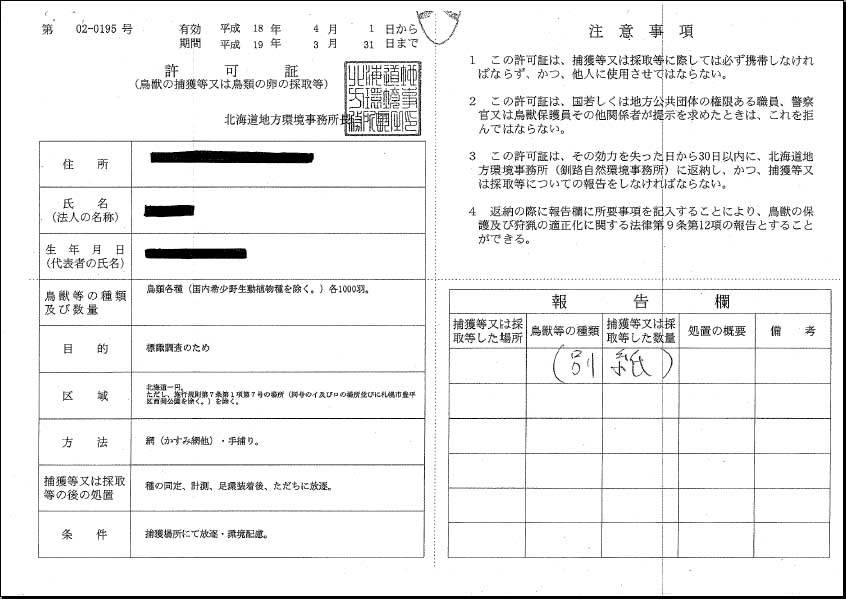 第 02-0195 号
有効 平成 18 年 4 月 1 日から
期間 平成 19 年 3 月 31 日まで
許可証
(鳥獣の捕獲等又は鳥類の卵の採取等)
北海道地方環境事務所長
住所
氏名
(法人の名称)
生年月日
(代表者の氏名)
鳥獣等の種類
及び数量
鳥類各種(国内希少野生動植物種を除く。)各1000羽。
目的
標識調査のため
区域
北海道一円。
ただし、施行規則第7条第1項第7号の場所(同号のイ及びロの場所並びに札幌市豊平
区西岡公園を除く。)を除く。
方法
網(かすみ網他)・手捕り。
捕獲等又は採取
等の後の処置
種の同定、計測、足環装着後、ただちに放逐。
条件
捕獲場所にて放逐・環境配慮。
注意事項
1 この許可証は、捕獲等又は採取等に際しては必ず携帯しなけれ
ばならず、かつ、他人に使用させてはならない。
2 この許可証は、国若しくは地方公共団体の権限ある職員、警察
官又は鳥獣保護員その他関係者が提示を求めたときは、これを拒
んではならない。
3 この許可証は、その効力を失った日から30日以内に、北海道地
方環境事務所(釧路自然環境事務所)に返納し、かつ、捕獲等又
は採取等についての報告をしなければならない。
4 返納の際に報告欄に所要事項を記入することにより、鳥獣の保
護及び狩猟の適正化に関する法律第9条第12項の報告とすること
ができる。
報告欄
捕獲等又は採
取等した場所
鳥獣等の種類
捕獲等又は採
取等した数量
処置の概要
備考
(別紙)